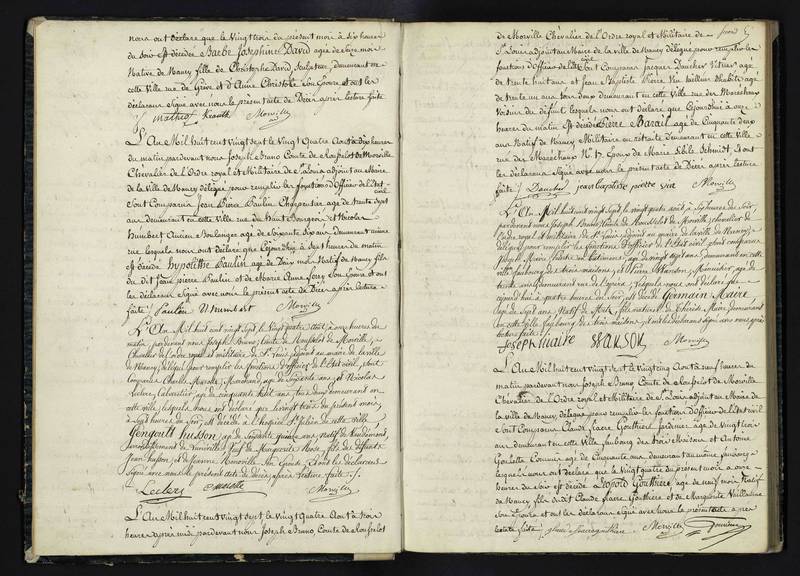 nous ont déclaré que le vingt trois du présent mois à six heures
du soir est décédée Barbe Josephine David agée de seize mois
Native de Nancy fille de Christophe David, Sculpteur, demeurant en
cette ville rue de Grève et d'Anne Christophe Son Epouse et ont les
déclarans signé avec nous le présent acte de Décès après lecture faite
Morville
L'An Mil huit cent vingt sept le vingt quatre Aout à dix heures
du matin pardevant nous Joseph Bruno Comte de Rousselot de Morville
Chevalier de l'Ordre royal et Militaire de St Louis adjoint au Maire
de la Ville de Nancy délégué pour remplir les fonctions d'Officier de l'Etat
civil
Sont Comparus Jean Pierre Paulin Charpentier agé de trente sept
ans demeurant en cette Ville rue du Haut Bourgeois et Nicolas
Humbert Ancien Boulanger agé de Soixante dix ans demeurant même
rue lesquels nous ont déclaré que Cejourdhuy à sept heures du matin
est décédé hypolitte Paulin agé de Deux mois Natif de Nancy fils
du dit Jean pierre Paulin et de Marie Anne Son Epouse et ont
les déclarans Signé avec nous le présent acte de Décès après lecture
faite Paulin N humbert Morville
L'An Mil huit cent vingt sept le vingt quatre Aout à onze heures du
matin, pardevant nous Joseph Bruno, Comte de Rousselot de Morville,
Chevalier de l'ordre royal et militaire de St Louis, adjoint au maire de la ville
de Nancy, délégué pour remplir les fonctions d'officier de l'Etat civil, sont
comparus Charles Marchand, agé de Soixante ans, et Nicolas
Leclerc, agé de cinquante huit ans, tous deux demeurant en
cette ville, lesquels nous ont déclaré que le vingt trois du présent mois,
à sept heures du soir, est décédé à l'hospice St Julien de cette ville,
Gengoult Husson, agé de Soixante quinze ans, natif de
arrondissement de Lunéville, Veuf de Marguerite Rose, fils des défunts
Jean Husson, et de Jeanne Son Epouse; et ont les déclarans
Signé avec nous le présent acte de Décès, après lecture faite.
Leclerc Morville
L'An Mil huit cent vingt sept le vingt Quatre Aout à Trois
heures après midi pardevant nous Joseph Bruno Comte de Rousselot
de Morville Chevalier de l'Ordre royal et Militaire de
St Louis adjoint au Maire de la ville de Nancy délégué pour remplir les
fonctions d'Officier de l'Etat civil Sont Comparus Jacques Douchet agé
de trente huit ans et Jean Baptiste Pierre Vix tailleur d'habits agé
de trente un ans tous deux demeurant en cette Ville rue des Maréchaux
Voisins du défunt lesquels nous ont déclaré que Cejourdhuy à onze
heures du matin est décédé Pierre Barail agé de Cinquante deux
ans Natif de Nancy Militaire en retraite demeurant en cette Ville
rue des Maréchaux Epoux de Marie Sibile Schmidt, et ont
les déclarans Signé avec nous le présent acte de Décès après lecture
faite Douchet jean baptiste pierre vix Morville
L'An Mil huit cent vingt sept, le vingt quatre aout à sept heures du soir,
pardevant nous Joseph Bruno, Comte de Rousselot de Morville, chevalier de
l'ordre royal et militaire de St Louis, adjoint au maire de la ville de Nancy,
délégué pour remplir les fonctions d'officier de l'Etat civil, sont comparus
Joseph Maire, peintre en bâtimens, agé de vingt sept ans, demeurant en cette
ville faubourg des trois maisons, et Pierre Wanson, Menuisier, agé de
trente ans, demeurant rue de l'opéra, lesquels nous ont déclaré que
cejourd'hui à quatre heures du soir, est décédé Germain Maire,
agé de Sept ans, Natif de Metz, fils naturel de Thérèse Maire, demeurant
en cette ville faubourg des trois maisons; et ont les déclarans signé avec nous après
lecture faite
Joseph Maire WANSON Morville
L'An Mil huit cent vingt sept le vingt cinq Aout à neuf heures du
matin pardevant nous Joseph Bruno Comte de Rousselot de Morville
Chevalier de l'Ordre royal et Militaire de St Louis adjoint au Maire de
la ville de Nancy, délégué pour remplir les fonctions d'Officier de l'Etat civil
Sont Comparus Claude Gouthiere jardinier agé de vingt trois
ans demeurant en cette Ville faubourg des trois Maisons et Antoine
Commis agé de Cinquante ans demeurant au même faubourg
lesquels nous ont déclaré que le vingt quatre du présent mois à onze
heures du soir est décédé Léopold Gouthiere, agé de neuf mois, Natif
de Nancy, fils du dit Claude Gouthiere et de Marguerite
Son Epouse et ont les déclarans Signé avec nous le présent acte après
lecture faite Morville